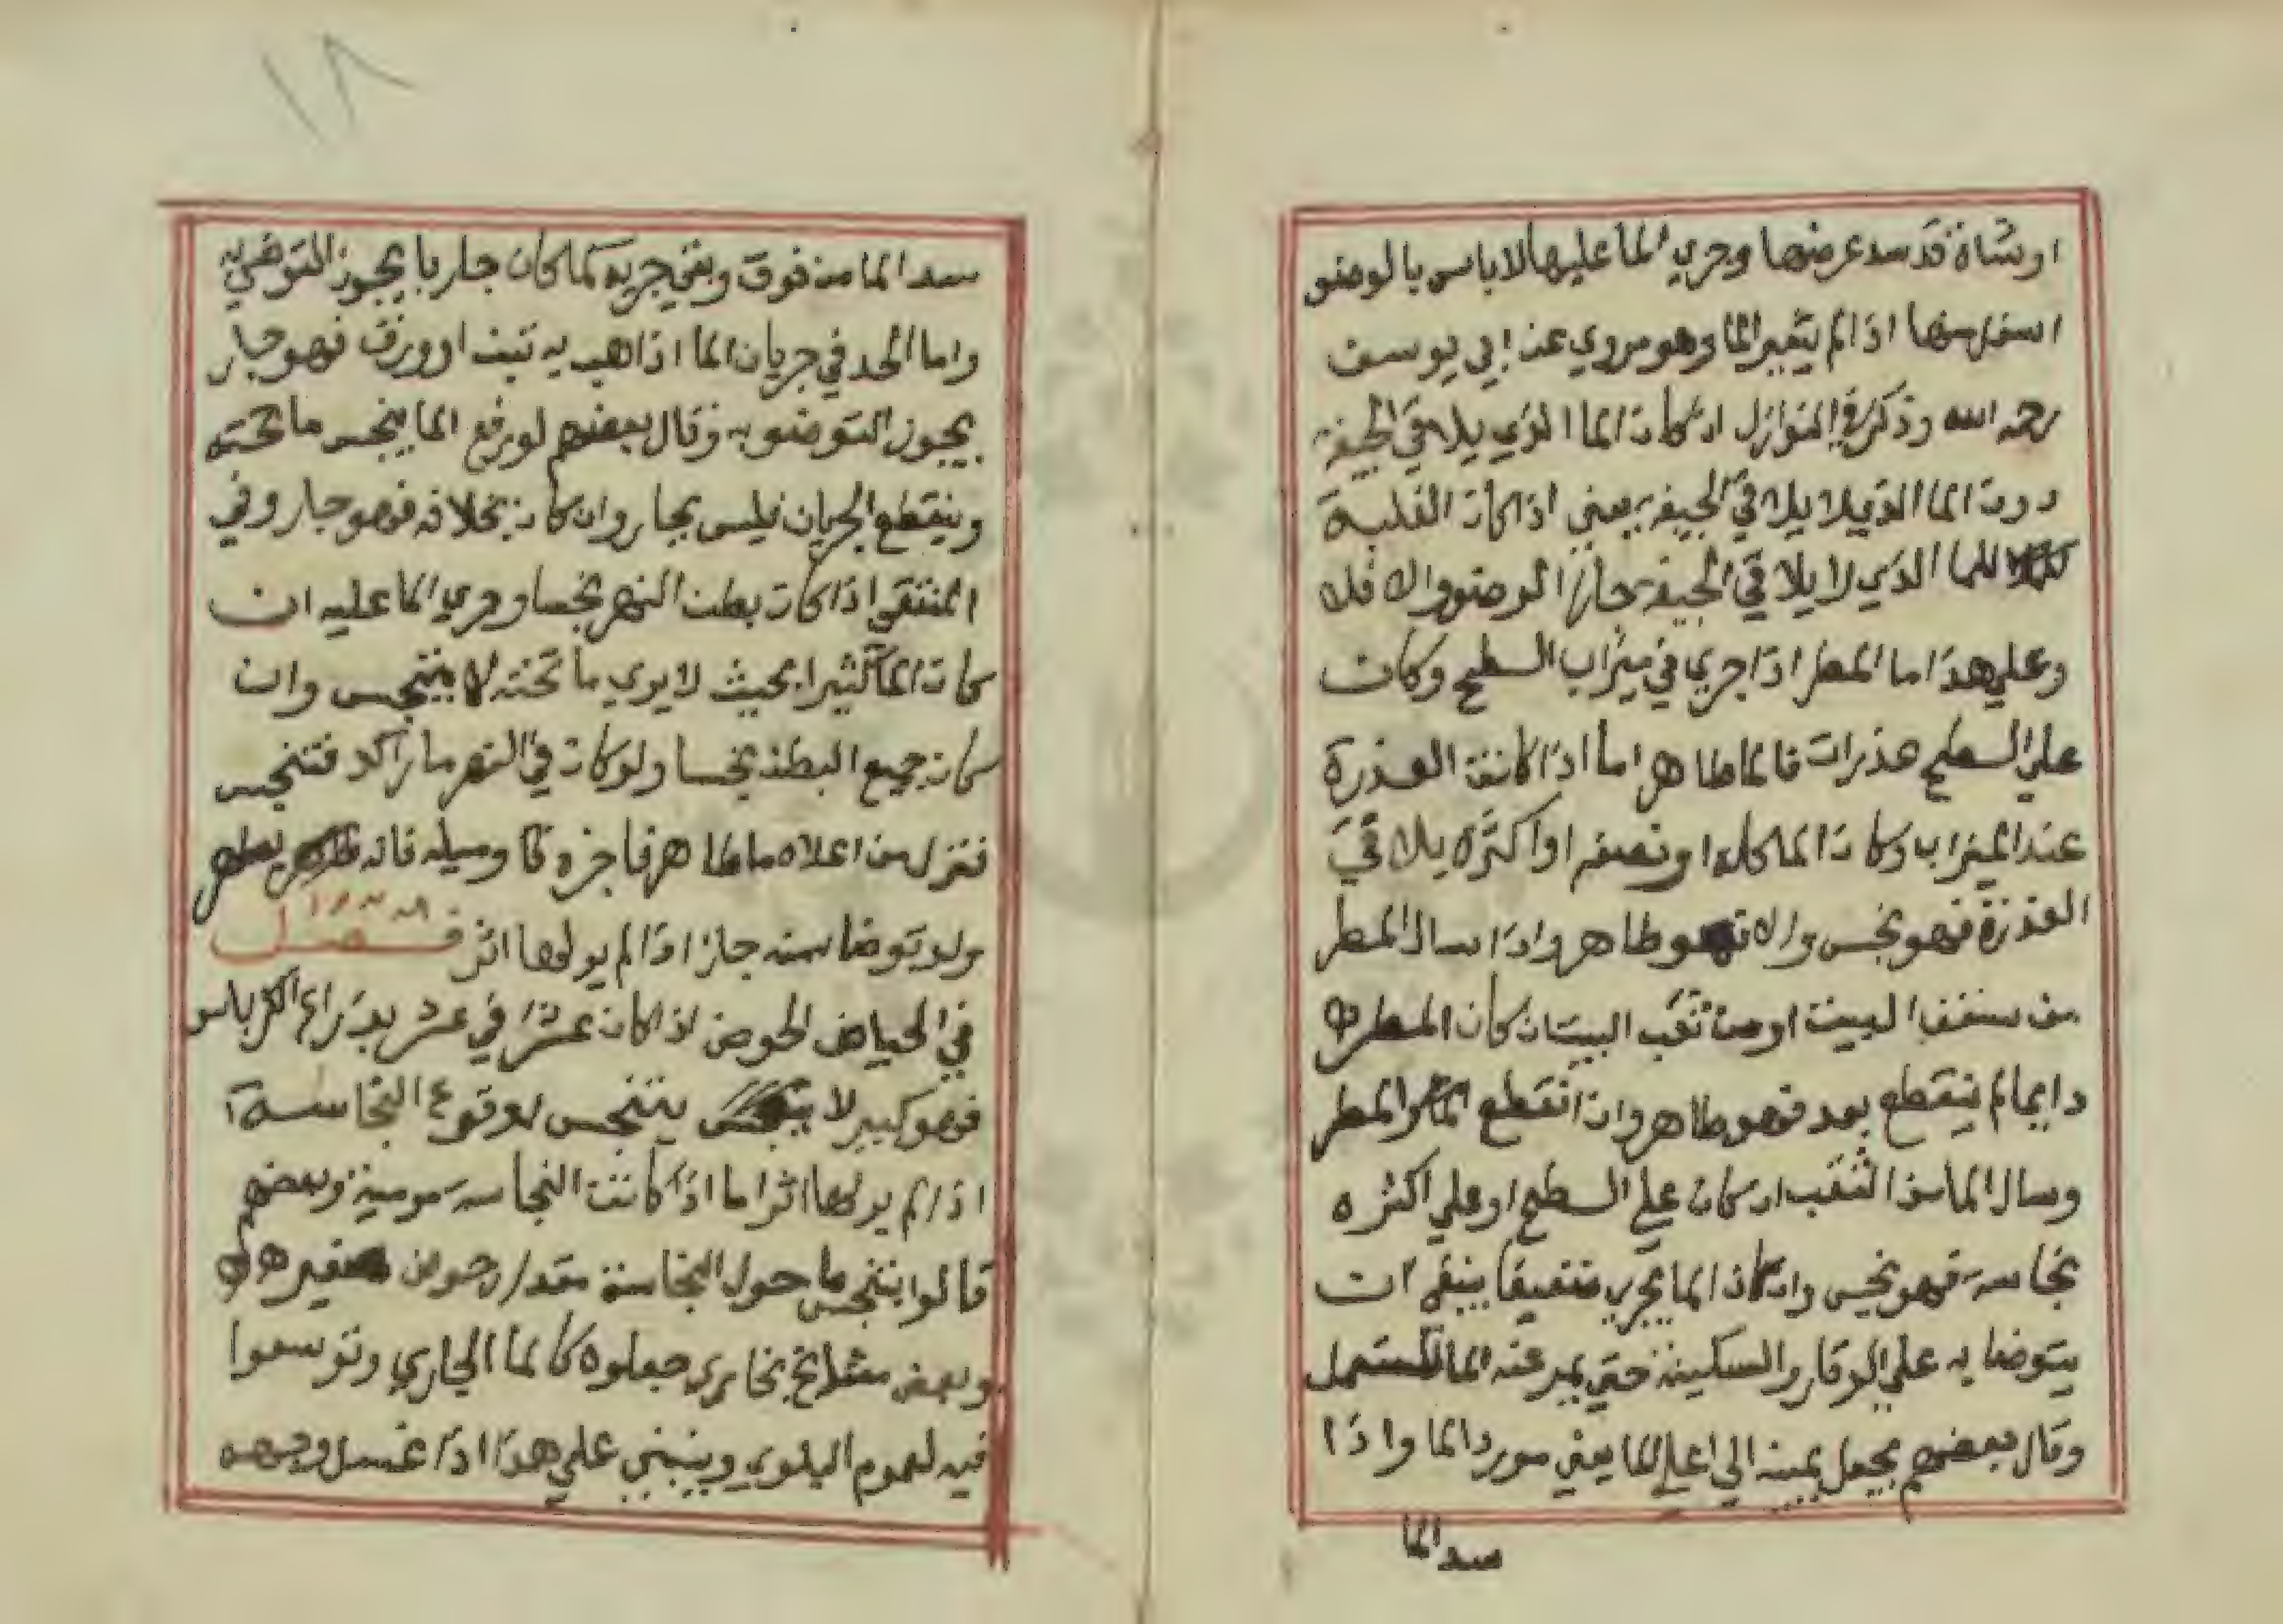 اوشاة قد سد عرضها وجري الما عليها لا باس بالوضو
اسفل منها اذا لم يتغير الما وهو مروي عن ابي يوسف
رحمه الله وذكر في النوازل ان كان الما الذي يلاقي الجيفة
دون الما الذي لا يلاقي الجيفة يعني اذا كان الغلبة
للما الذي لا يلاقي الجيفة جاز الوضو والا فلا
وعلي هذا ما المطر اذا جري في ميزاب السطح وكان
علي السطح عذرات فالما طاهر اما اذا كانت العذرة
عند الميزاب وكان الما كله او نصفه او اكثره يلاقي
العذرة فهو نجس والا فهو طاهر واذا سال المطر
من سقف البيت او من ثقب البيت ان كان المطر
دايما لم ينقطع بعد فهو طاهر وان انقطع المطر
وسال الما من الثقب ان كان علي السطح او علي اكثره
نجاسة فهو نجس وان كان الما يجري ضعيفا ينبغي ان
يتوضا به علي الوقار والسكينة حتي يمر عنه الما المستعمل
وقال بعضهم يجعل يمينه الي اعلي الما يعني مورد الما واذا
سد الما
١٨
سد الما من فوق وبقي جريه كما كان جاريا يجوز التوضي به
واما الحد في جريان الما اذا ذهب به تبن او ورق فهو جار
يجوز التوضو به وقال بعضهم لو رفع الما ينجس ما تحته
وينقطع الجريان فليس بجار وان كان بخلافه فهو جار وفي
المنتقي اذا كان بطن النهر نجسا وجري الما عليه ان
كان الما كثيرا بحيث لا يري ما تحته لا يتنجس وان
كان جميع البطن نجسا ولو كان في النهر ما راكد فتنجس
فنزل من اعلاه ما طاهر فاجره وسيله فانه يطهر
ولو توضا منه جاز اذا لم ير لها اثر فصل
في الحياض الحوض اذا كان عشرا في عشر بذراع الكرباس
فهو كبير لا يتنجس بوقوع النجاسة
اذا لم ير لها اثر اما اذا كانت النجاسة مرمية وبعضهم
قالوا يتنجس ما حول النجاسة مقدار حوض صغير
وبعض مشايخ بخاري جعلوه كالما الجاري وتوسعوا
فيه لعموم البلوي وينبني علي هذا اذا غسل وجهه